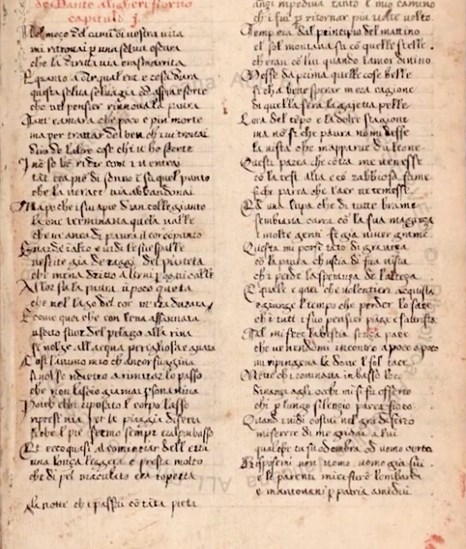 de Dante Aligheri fiorno
capitulo I.
Nel mezo del cami di nostra vita
mi ritrovai p una selva oscura
che la diritta via era smarrita
E quanto a dir qual era e cosa dura
questa selva selvagia ed aspra e forte
che nel pensier rinnova la paura
Tant e amara che poco e piu morte
ma per trattar del ben ch i vi trovai
diro de l altre cose ch i v ho scorte
I no so be ridir com i v entrai
tant era pie di sonno i su quel punto
che la verace via abbandonai
Ma po che i fui a pie d un colle giunto
la ove terminava quela valle
che m avea di paura il cor
Guardai i alto e vidi le sue spalle
vestite gia de raggi del pianeta
che mena dritto altrui p ogni calle
Allor fu la paura u poco queta
che nel lago del cor m era durata
E come quei che con lena affannata
uscito fuor del pelago alla riva
se volge all acqua perigliosa e guata
Cosi l animo mio ch ancor fuggiva
si volse a retro a rimirar lo passo
che non lascio gia mai p sona viva
 riposato il corpo lasso
ripresi via per la piaggia diserta
si che l pie fermo sempre era l piu basso
Et ecco quasi al cominciar dell erta
una lonza leggera e presta molto
che di pel maculato era coperta
la notte ch i passai co tata pieta
anzi impediva tanto il mio camino
ch i fui p ritornar piu volte volto
Temp era dal principio del mattino
e l sol montava su co quelle stelle
ch eran co lui quando l amor divino
Mosse da prima quelle cose belle
si ch a bene sperar m era cagione
di quella fera la gaetta pelle
L ora del tepo e la dolce stagione
ma no si che paura no mi desse
la vista che m apparve d u leone
Questi parea che cotra me venesse
co la test alta e co rabbiosa fame
si che parea che l aer ne temesse
Ed una lupa che di tutte brame
sembiava carca co la sua magrezza
e molte genti fe gia viver grame
Questa mi porse tato di gravezza
co la paura ch uscia di sua vista
ch i perde la speranza de l altezza
E quale e quei che volentieri acquista
e giunge l tempo che perder lo face
ch i tutti i suo pensier piage e s attrista
Tal mi fece la bestia senza pace
che ve nendomi incontro a poco a poco
mi ripingeva la dove l sol tace
Mentre ch i rovinava in basso loco
dinazi agli occhi mi si fu offerto
chi p lungo silenzio parea fioco
Quand i vidi costui nel gra diserto
miserere di me gridai a lui
qual che tu sii od ombra od uomo certo
Risposemi non uomo uomo gia fui
e li parenti miei furo lombardi
e mantovani p patria amedui